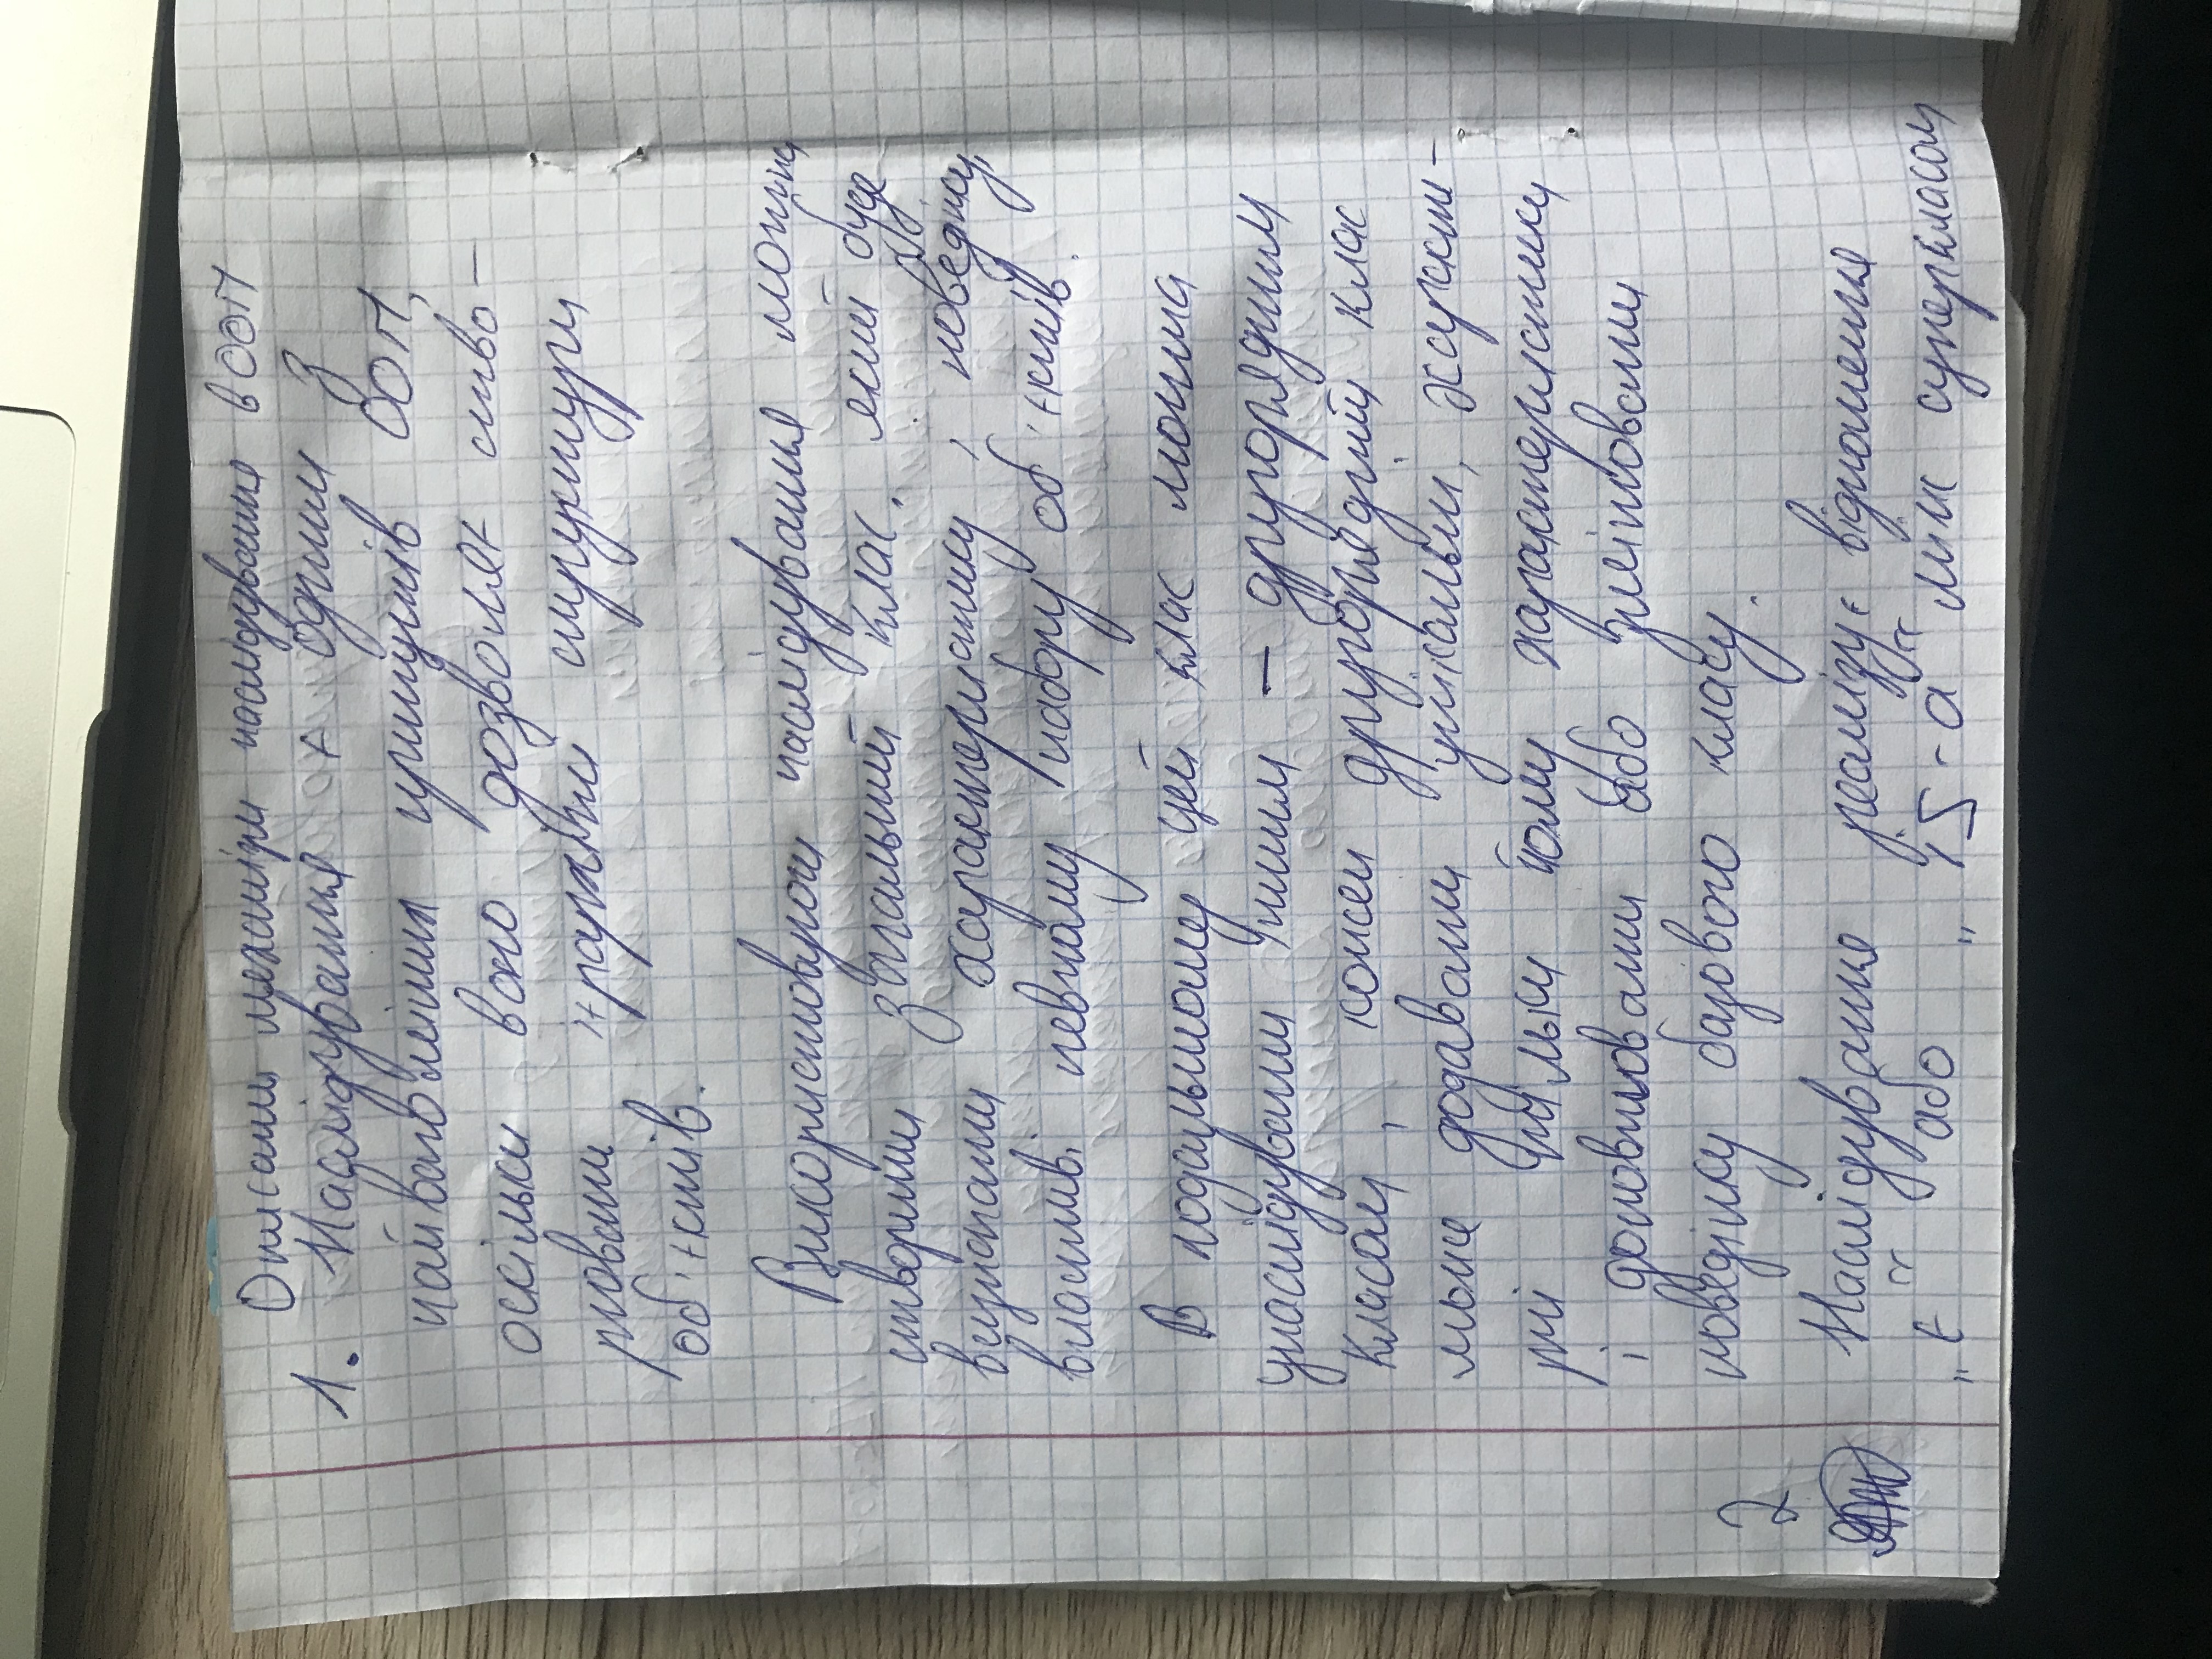 Описати механізми наслідування в ООП
1. Наслідування є одним з
найвагоміших принципів ООП,
оскільки воно дозволяє ство-
рювати ієрархічні структури
об'єктів.
Використовуючи наслідування можна
створити загальний клас, який буде
визначати характеристику і поведінку,
властиві певному набору об'єктів.
В подальшому цей клас можна
унаслідувати іншим — другорядним
класом, кожен другорядний клас
може додавати унікальні, характе-
рні тільки йому характеристики
і доповнювати або змінювати
поведінку базового класу.
2
Наслідування реалізує відношення
„є“ або „is-a“ між суперкласом